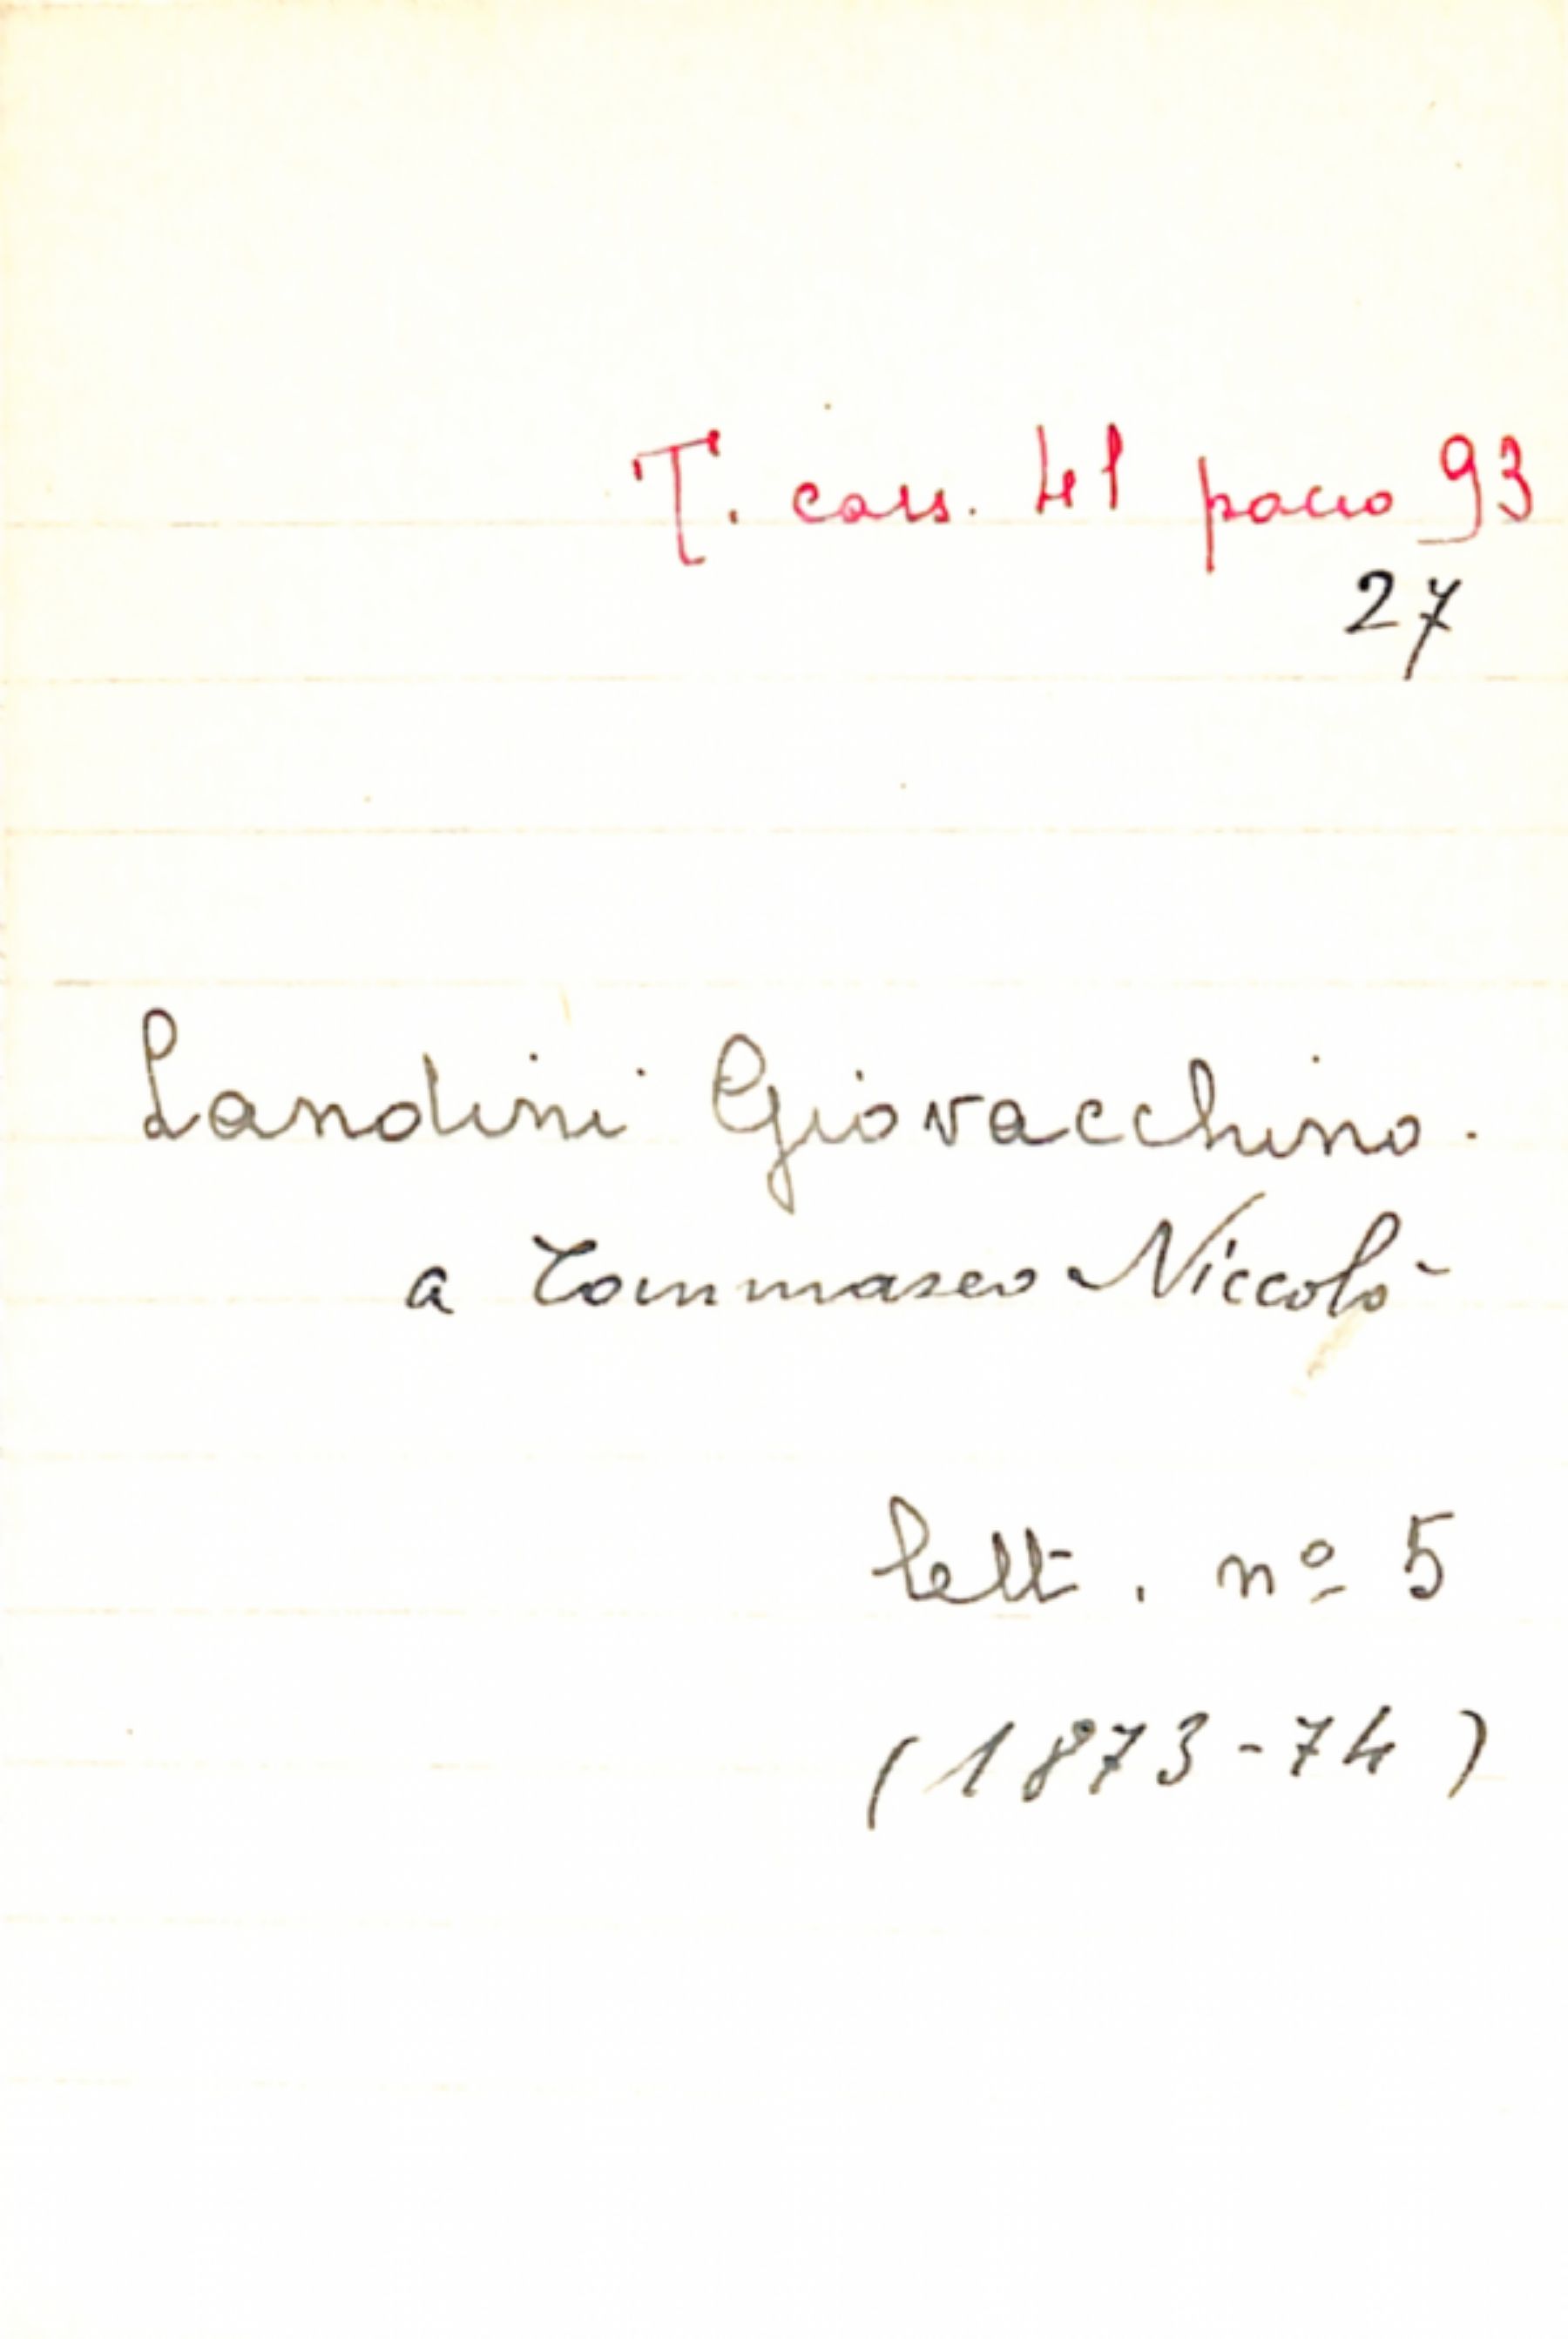 T. cass. 41 pacco 93
27
Landini Giovacchino.
a Tommaseo Niccolò
lett. nº 5
(1873-74)